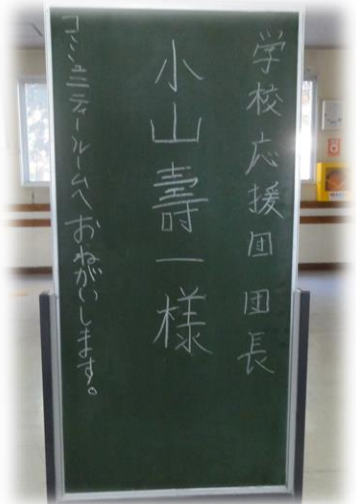 学校応援団団長
小山壽一様
コミュニティールームへおねがいします。